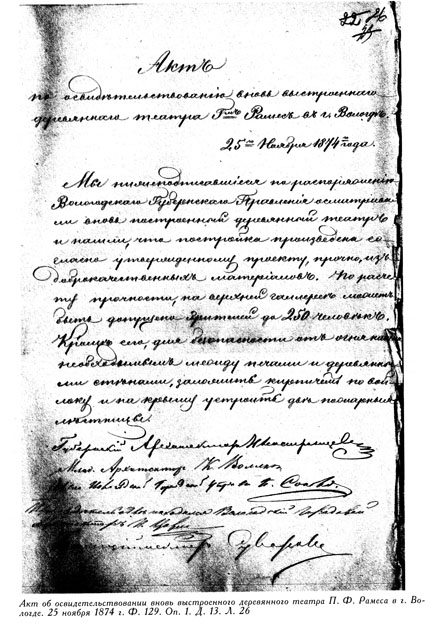 26
Актъ
по освидѣтельствованію вновь выстроеннаго
деревяннаго театра Гна Рамесъ въ г. Вологдѣ.
25го Ноября 1874 года.
Мы нижеподписавшіеся по распоряженію
Вологодскаго Губернскаго Правленія осматрива
ли вновь построенный деревянный театръ
и нашли, что постройка произведена со
гласно утвержденному проекту, прочно, изъ
доброкачественныхъ матеріаловъ. По расче
ту прочности, на верхней галлереѣ можетъ
быть допущено зрителей до 250 человѣкъ.
Кромѣ сего, для безопасности отъ огня
необходимымъ между печами и деревянны
ми стѣнами, заложить кирпичемъ по вой
локу и на крышу устроить двѣ пожарныя
лѣстницы.
Губернскій Архитекторъ
Млад. Архитекторъ К.
Акт об освидетельствовании вновь выстроенного деревянного театра П. Ф. Рамеса в г. Во-
логде. 25 ноября 1874 г. Ф. 129. Оп. 1. Д. 13. Л. 26